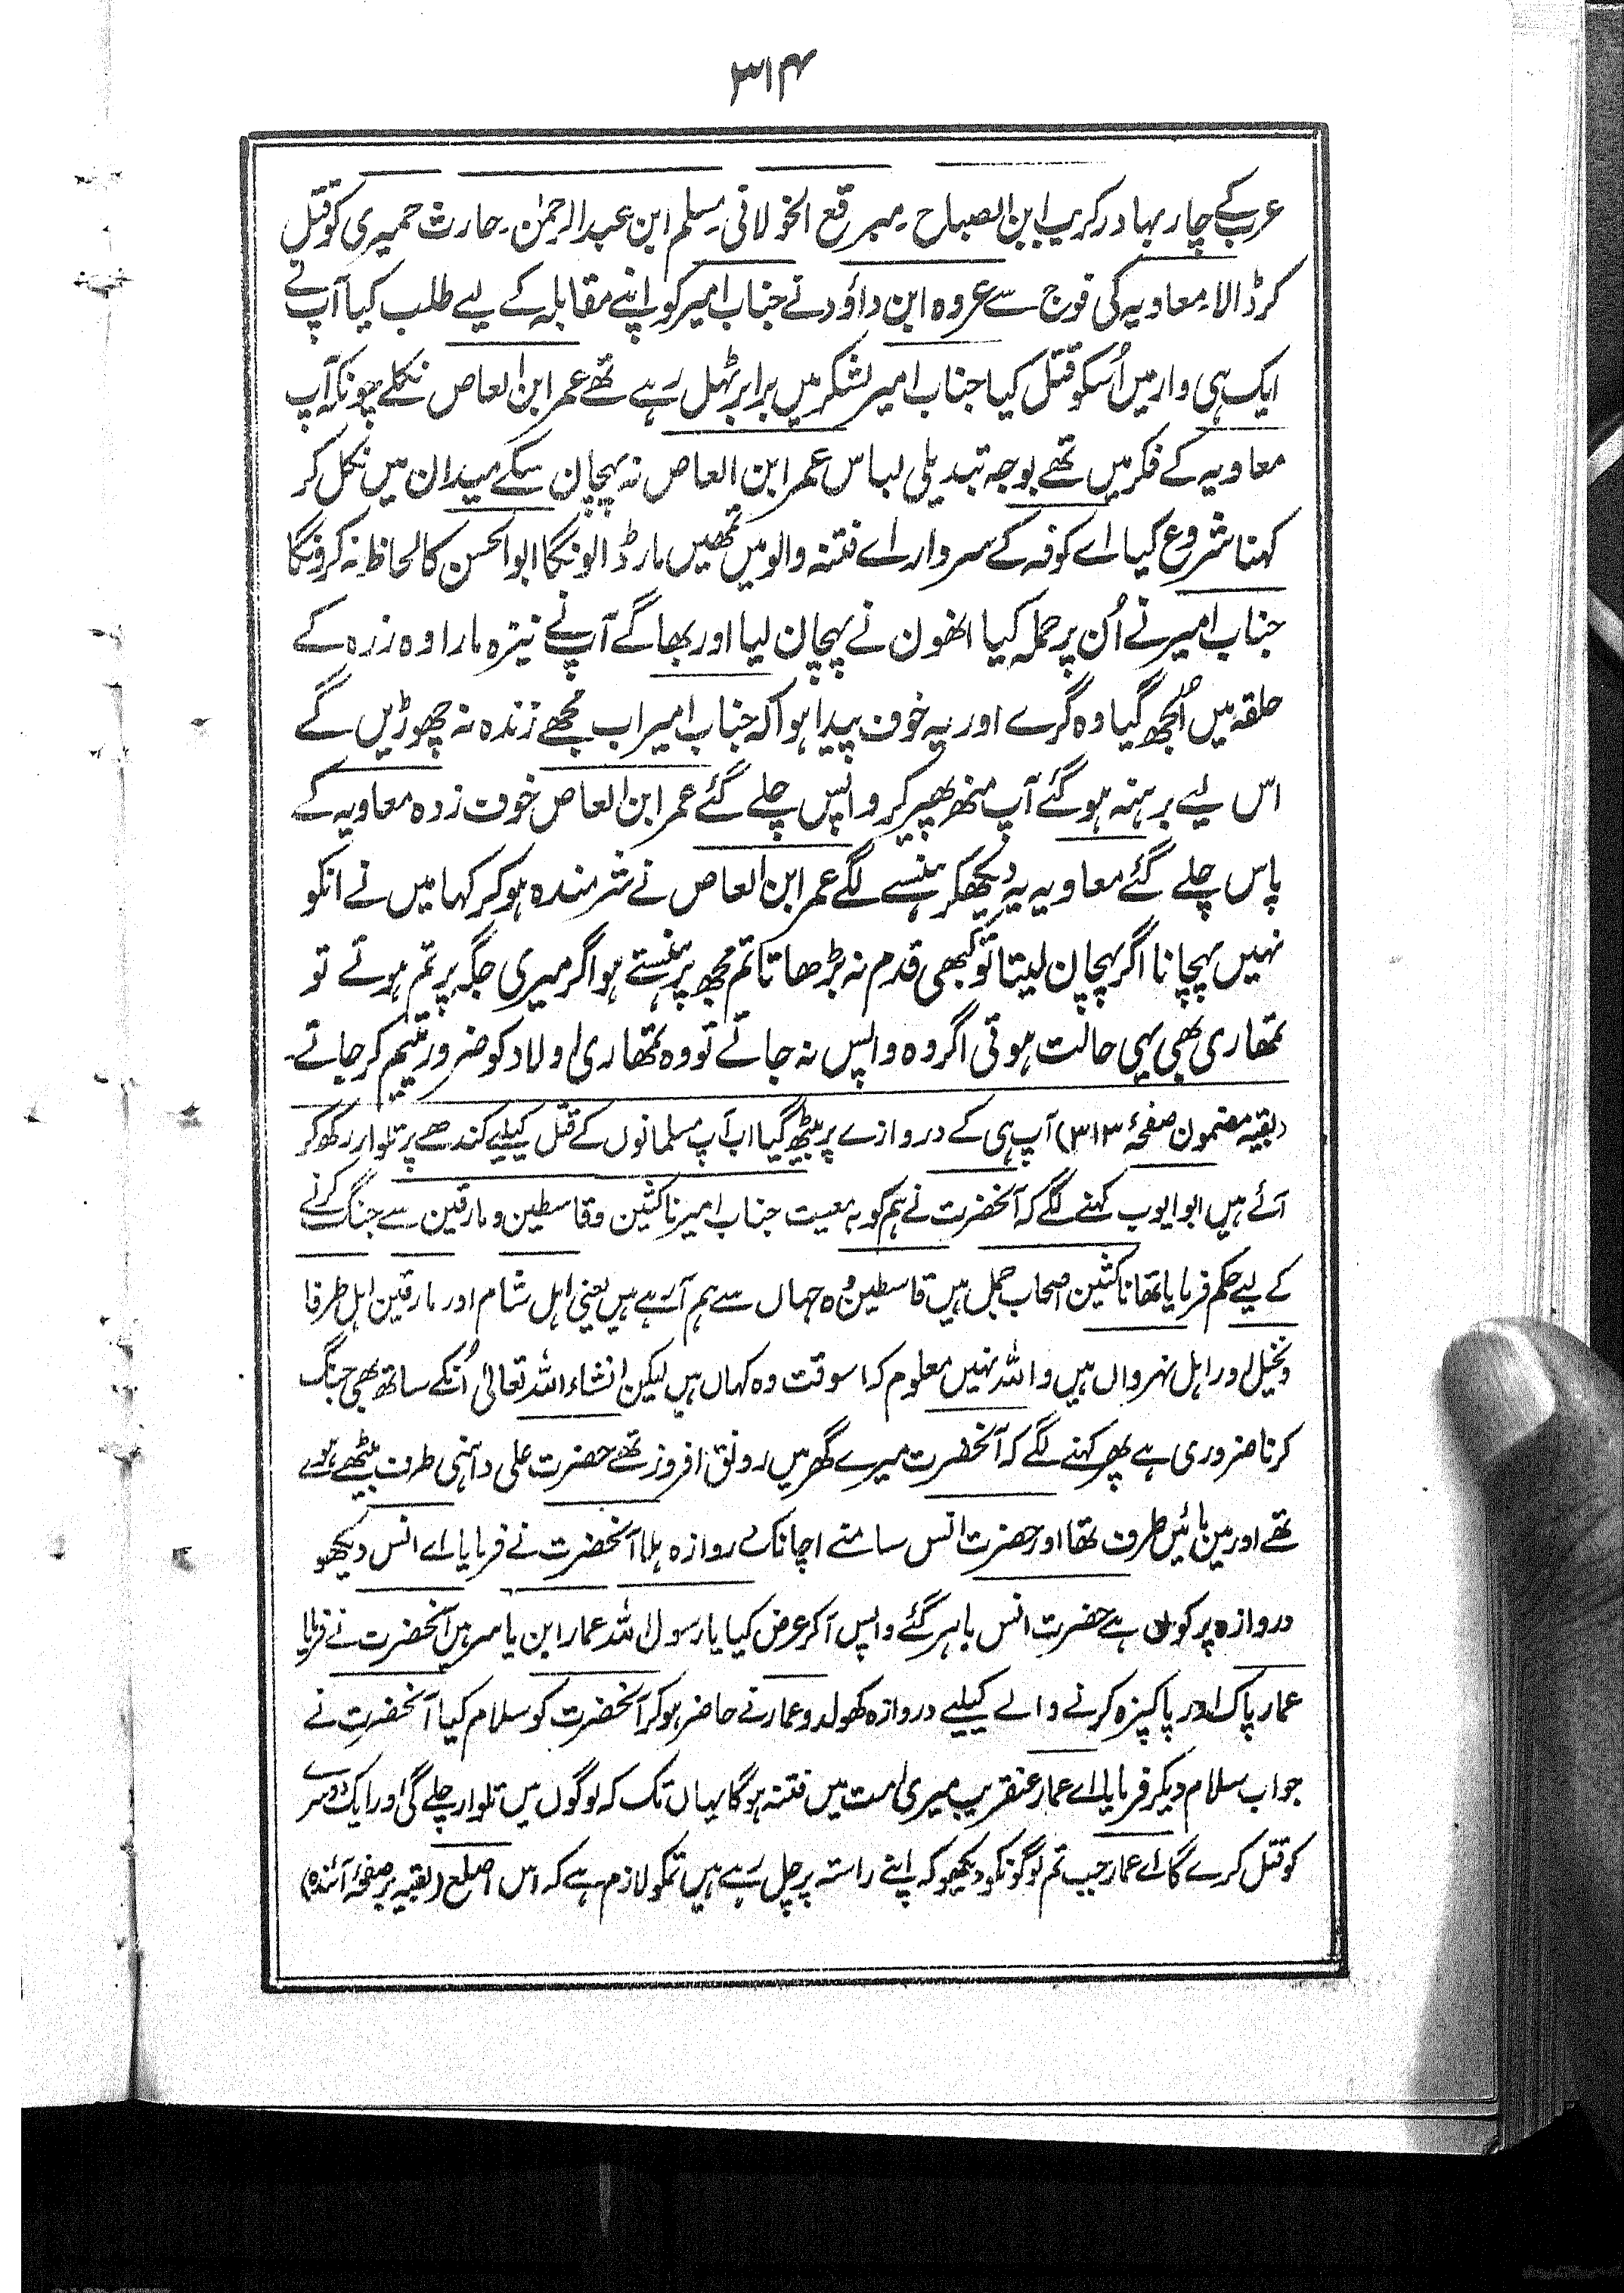 ۳۱۴
عرب کے چار بہادر کریب ابن الصباح۔ میر قع الخولانی۔ مسلم ابن عبد الرحمٰن۔ حارث حمیری کو قتل
کر ڈالا۔ معاویہ کی فوج سے عروہ ابن داؤد نے جناب امیر کو اپنے مقابلہ کے لیے طلب کیا آپ نے
ایک ہی وار میں اُسکو قتل کیا جناب امیر لشکر میں برابر ٹہل رہے تھے عمر ابن العاص نکلے چونکہ آپ
معاویہ کے فکر میں تھے بوجہ تبدیلی لباس عمر ابن العاص نہ پہچان سکے میدان میں نکل کر
کہنا شروع کیا اے کوفہ کے سردار اے فتنہ والو میں تمھیں مار ڈالونگا ابو الحسن کا لحاظ نہ کرونگا
جناب امیر نے اُن پر حملہ کیا انھون نے پہچان لیا اور بھاگے آپنے نیزہ مارا وہ زرہ کے
حلقہ میں اُلجھ گیا وہ گرے اور یہ خوف پیدا ہوا کہ جناب امیر اب مجھے زندہ نہ چھوڑیں گے
اس لیے برہنہ ہو گئے آپ منھ پھیر کر واپس چلے گئے عمر ابن العاص خوف زدہ معاویہ کے
پاس چلے گئے معاویہ یہ دیکھکر ہنسے لگے عمر ابن العاص نے شرمندہ ہو کر کہا میں نے انکو
نہیں پہچانا اگر پہچان لیتا تو کبھی قدم نہ بڑھاتا تم مجھ پر ہنستے ہو اگر میری جگہ پر تم ہوتے تو
تمھاری بھی یہی حالت ہوتی اگر وہ واپس نہ جاتے تو وہ تمھاری اولاد کو ضرور یتیم کر جاتے۔
(بقیہ مضمون صفحہ ۳۱۳) آپ ہی کے دروازے پر بیٹھ گیا اب آپ مسلمانوں کے قتل کیلیے کندھے پر تلوار رکھ کر
آئے ہیں ابو ایوب کہنے لگے کہ آنخضرت نے ہم کو بہ معیت جناب امیر ناکثین و قاسطین و مارقین سے جنگ کرنے
کے لیے حکم فرمایا تھا ناکثین اصحاب جمل ہیں قاسطین وُہ جہاں سے ہم آرہے ہیں یعنی اہل شام اور مارقین اہل طرفا
و نخیل اور اہل نہروان ہیں واللہ نہیں معلوم کہ اسوقت وہ کہاں ہیں لیکن انشاء اللہ تعالیٰ اُنکے ساتھ بھی جنگ
کرنا ضروری ہے پھر کہنے لگے کہ آنخضرت میرے گھر میں رونق افروز تھے حضرت علی داہنی طرف بیٹھے ہوے
تھے اور مین بائیں طرف تھا اور حضرت انس سامنے اچانک دروازہ ہلا آنخضرت نے فرمایا اے انس دیکھو
دروازہ پر کون ہے حضرت انس باہر گئے واپس آکر عرض کیا یا رسول اللہ عمار ابن یاسر ہین آنخضرت نے فرمایا
عمار پاک اور پاکیزہ کرنے والے کیلیے دروازہ کھولدو عمار نے حاضر ہو کر آنخضرت کو سلام کیا آنخضرت نے
جواب سلام دیکر فرمایا اے عمار عنقریب میری امت میں فتنہ ہوگا یہاں تک کہ لوگوں میں تلوار چلے گی اور ایک دوسرے
کو قتل کرے گا اے عمار جب تم لوگونکو دیکھو کہ اپنے راستہ پر چل رہے ہیں تمکو لازم ہے کہ اس اصلع (بقیہ بر صفحۂ آئندہ)